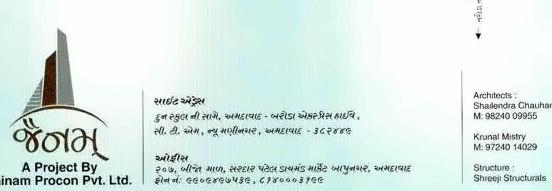 જૈનમ્
A Project By
inam Procon Pvt. Ltd.
સાઈટ એડ્રેસ
દુન સ્કુલ ની સામે, અમદાવાદ - બરોડા એક્સપ્રેસ હાઈવે,
સી. ટી. એમ, ન્યૂ મણીનગર, અમદાવાદ - ૩૮૨૪૪૯
ઓફીસ
૨૦૭, બીજા માળ, સરદાર પટેલ ડાયમંડ માર્કેટ બાપુનગર, અમદાવાદ
ફોન નં:
Architects :
Shailendra Chauhan
M: 98240 09955
Krunal Mistry
M: 97240 14029
Structure :
Shreeji Structurals